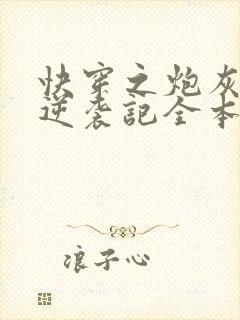 快穿之炮灰
逆袭記全本
浪子心